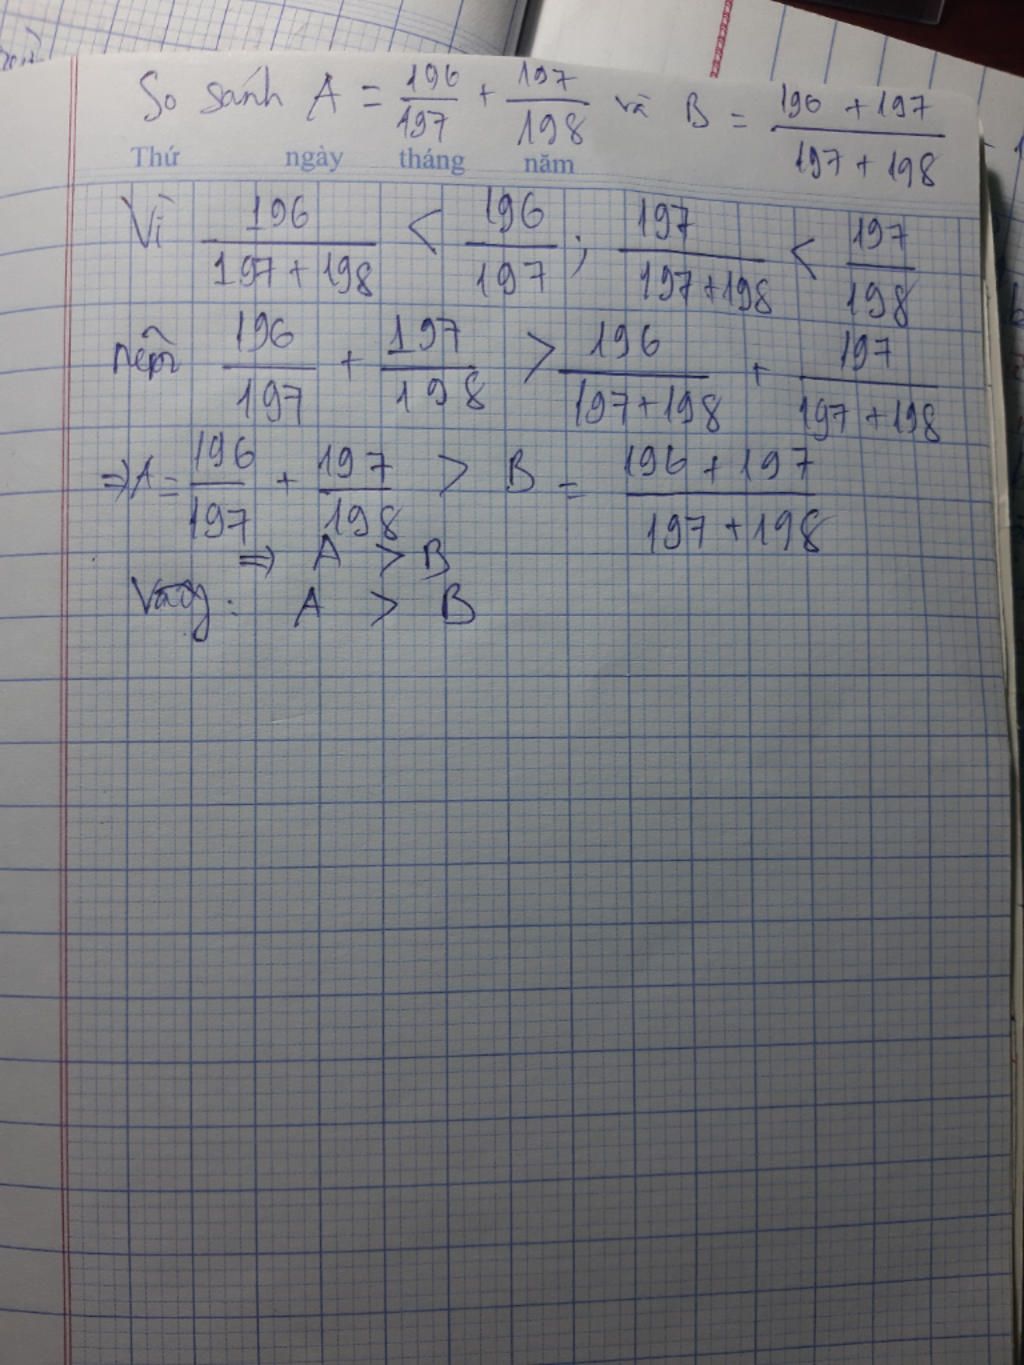 So sánh A = 196/197 + 197/198 và B = (196 + 197)/(197 + 198)
Thứ ngày tháng năm
Vì 196/(197 + 198) < 196/197 ; 197/(197 + 198) < 197/198
nên 196/197 + 197/198 > 196/(197 + 198) + 197/(197 + 198)
⇒ A = 196/197 + 197/198 > B = (196 + 197)/(197 + 198)
⇒ A > B
Vậy : A > B